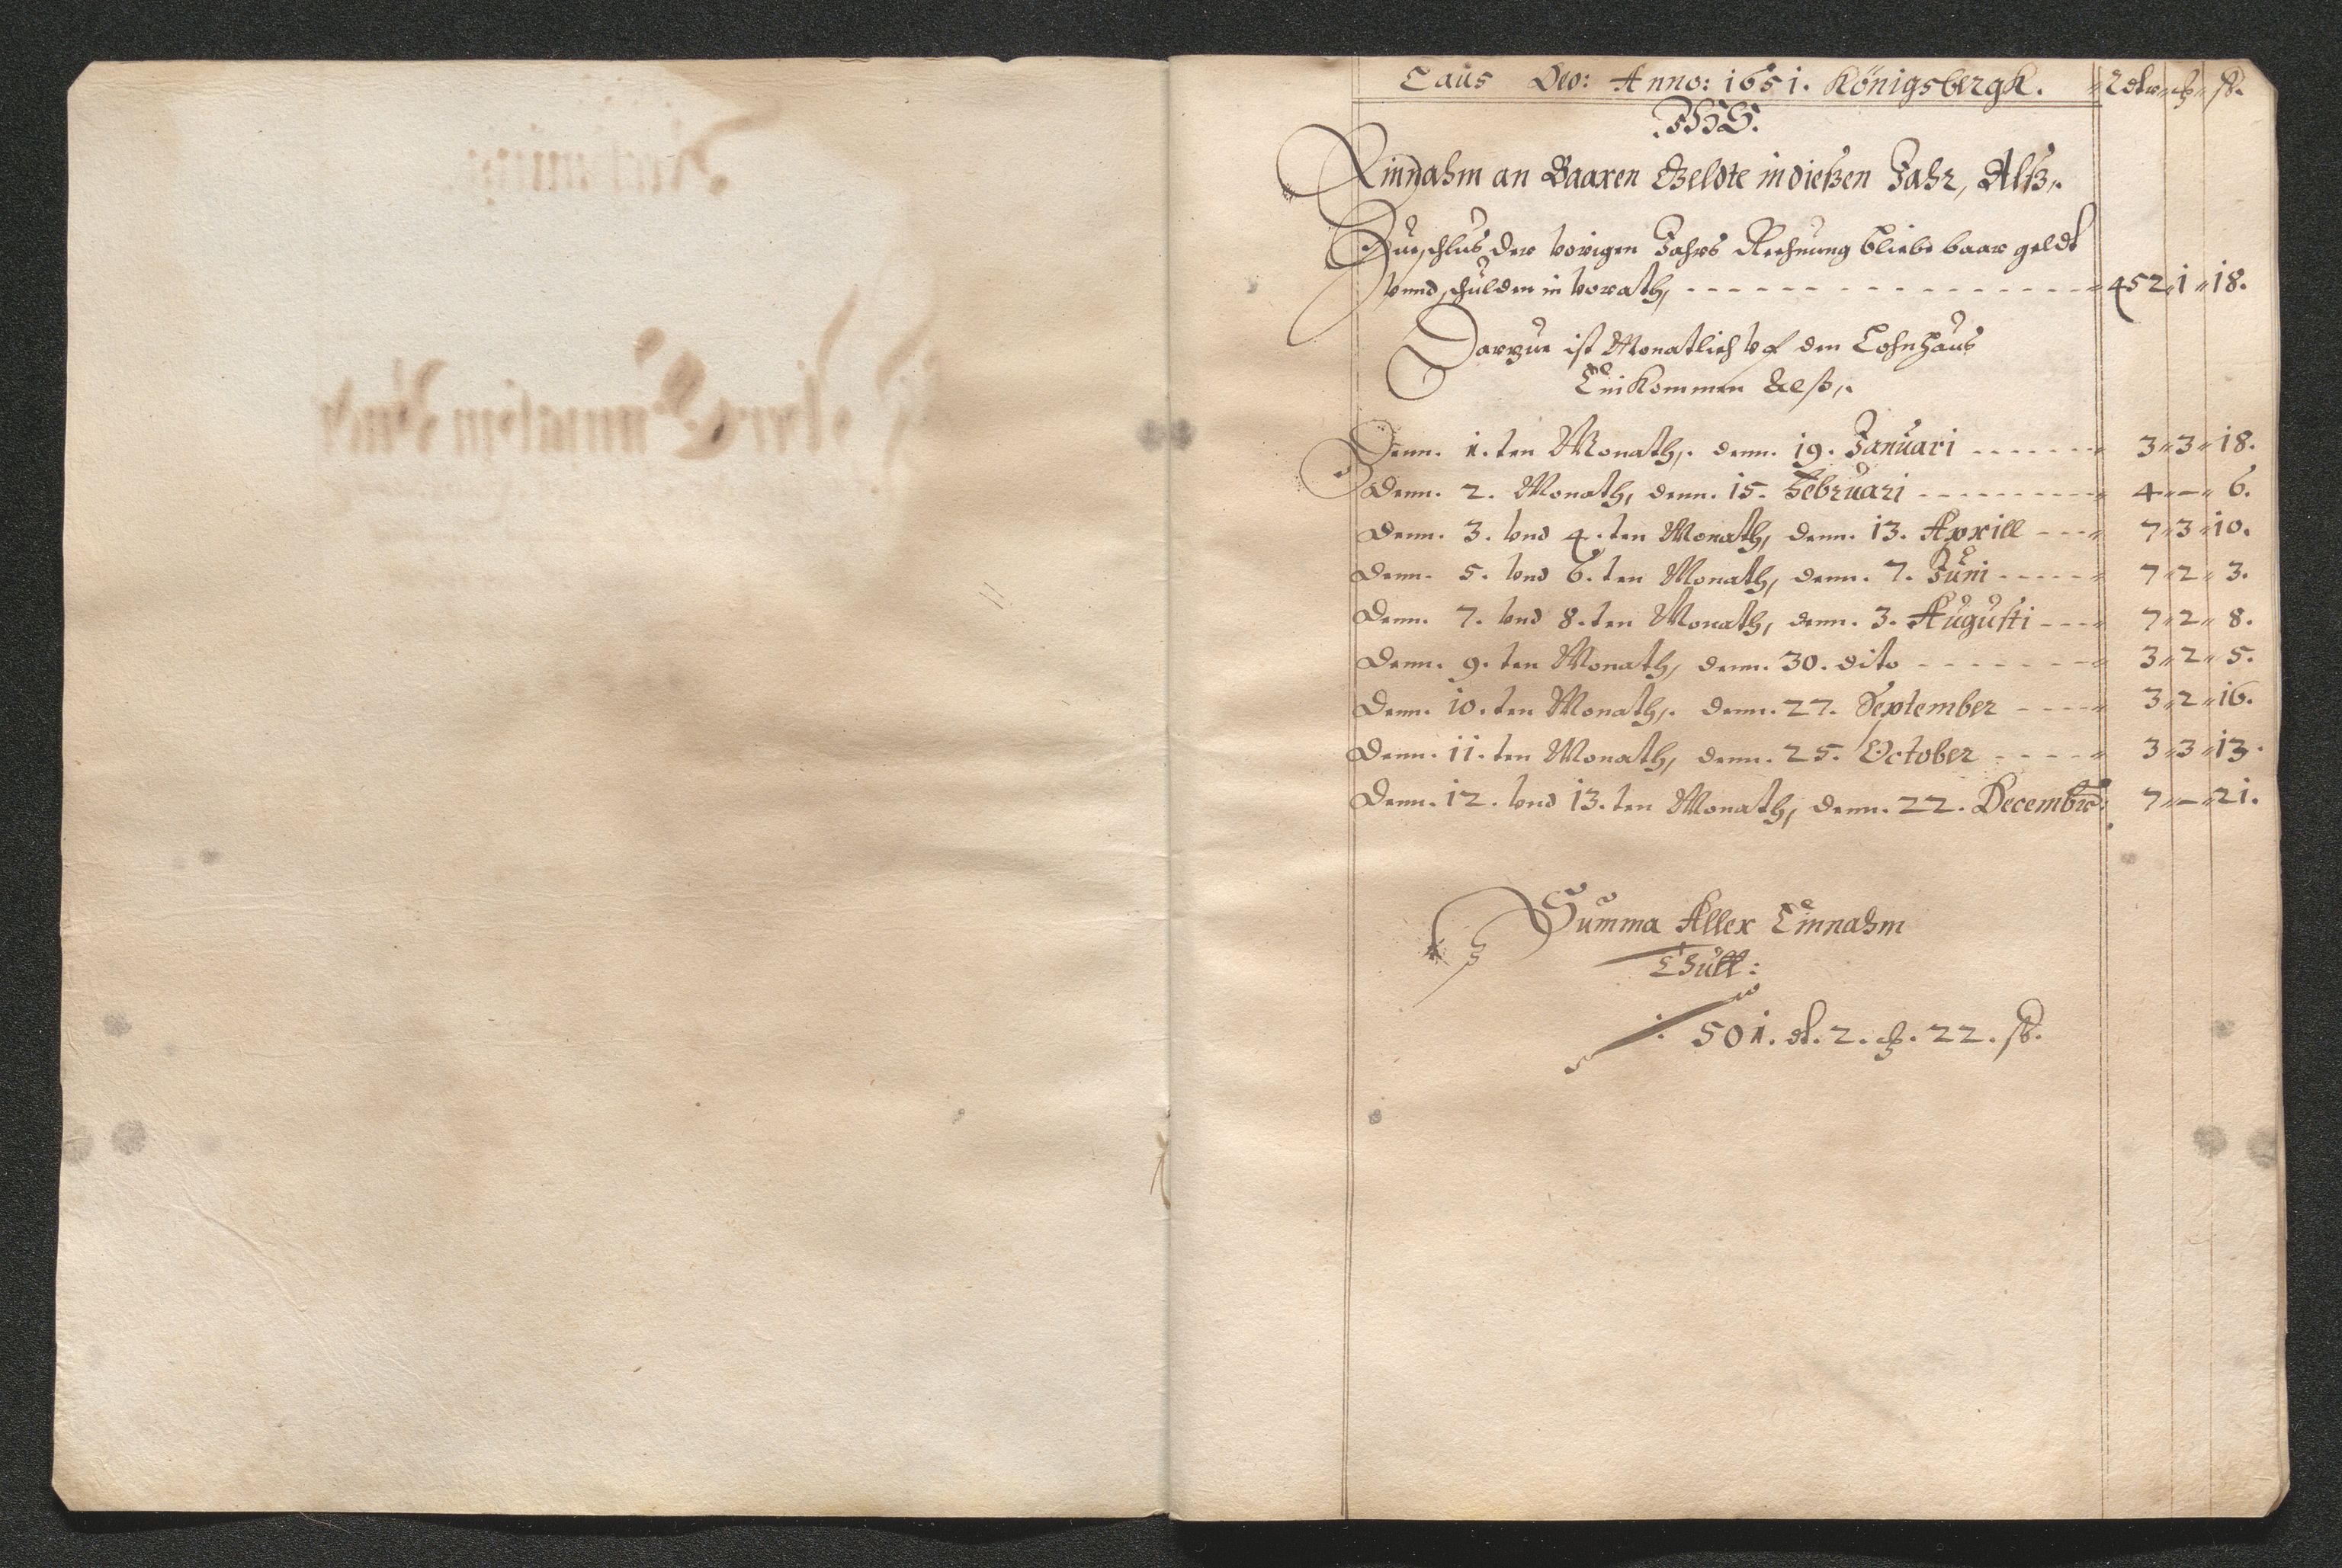 Laus Deo: Anno: 1651. Königsbergk.
Einnahm an Baaren Geldte in dießen Jahr, Alß,.
Zue schlus der vorigen Jahrs Rechnung bliebe baar geldt
vnnd schulden in vorath, 452 " 1 " 18.
Darzue ist Monatlich vf den Lohnhaus
Einkommen Alß,.
Denn. 1. ten Monath,. denn. 19. Januari 3 " 3 " 18.
Denn. 2. Monath, denn. 15. Februari 4 " — " 6.
Denn. 3. vnd 4. ten Monath, denn. 13. Aprill 7 " 3 " 10.
Denn. 5. vnd 6. ten Monath, denn. 7. Juni 7 " 2 " 3.
Denn. 7. vnd 8. ten Monath, denn. 3. Augusti 7 " 2 " 8.
Denn. 9. ten Monath, denn. 30. dito 3 " 2 " 5.
Denn. 10. ten Monath,. denn. 27. September 3 " 2 " 16.
Denn. 11. ten Monath, denn. 25. October 3 " 3 " 13.
Denn. 12. vnd 13. ten Monath, denn. 22. Decembr: 7 " — " 21.
Summa Aller Einnahm
Thutt:
501. 2. 22.